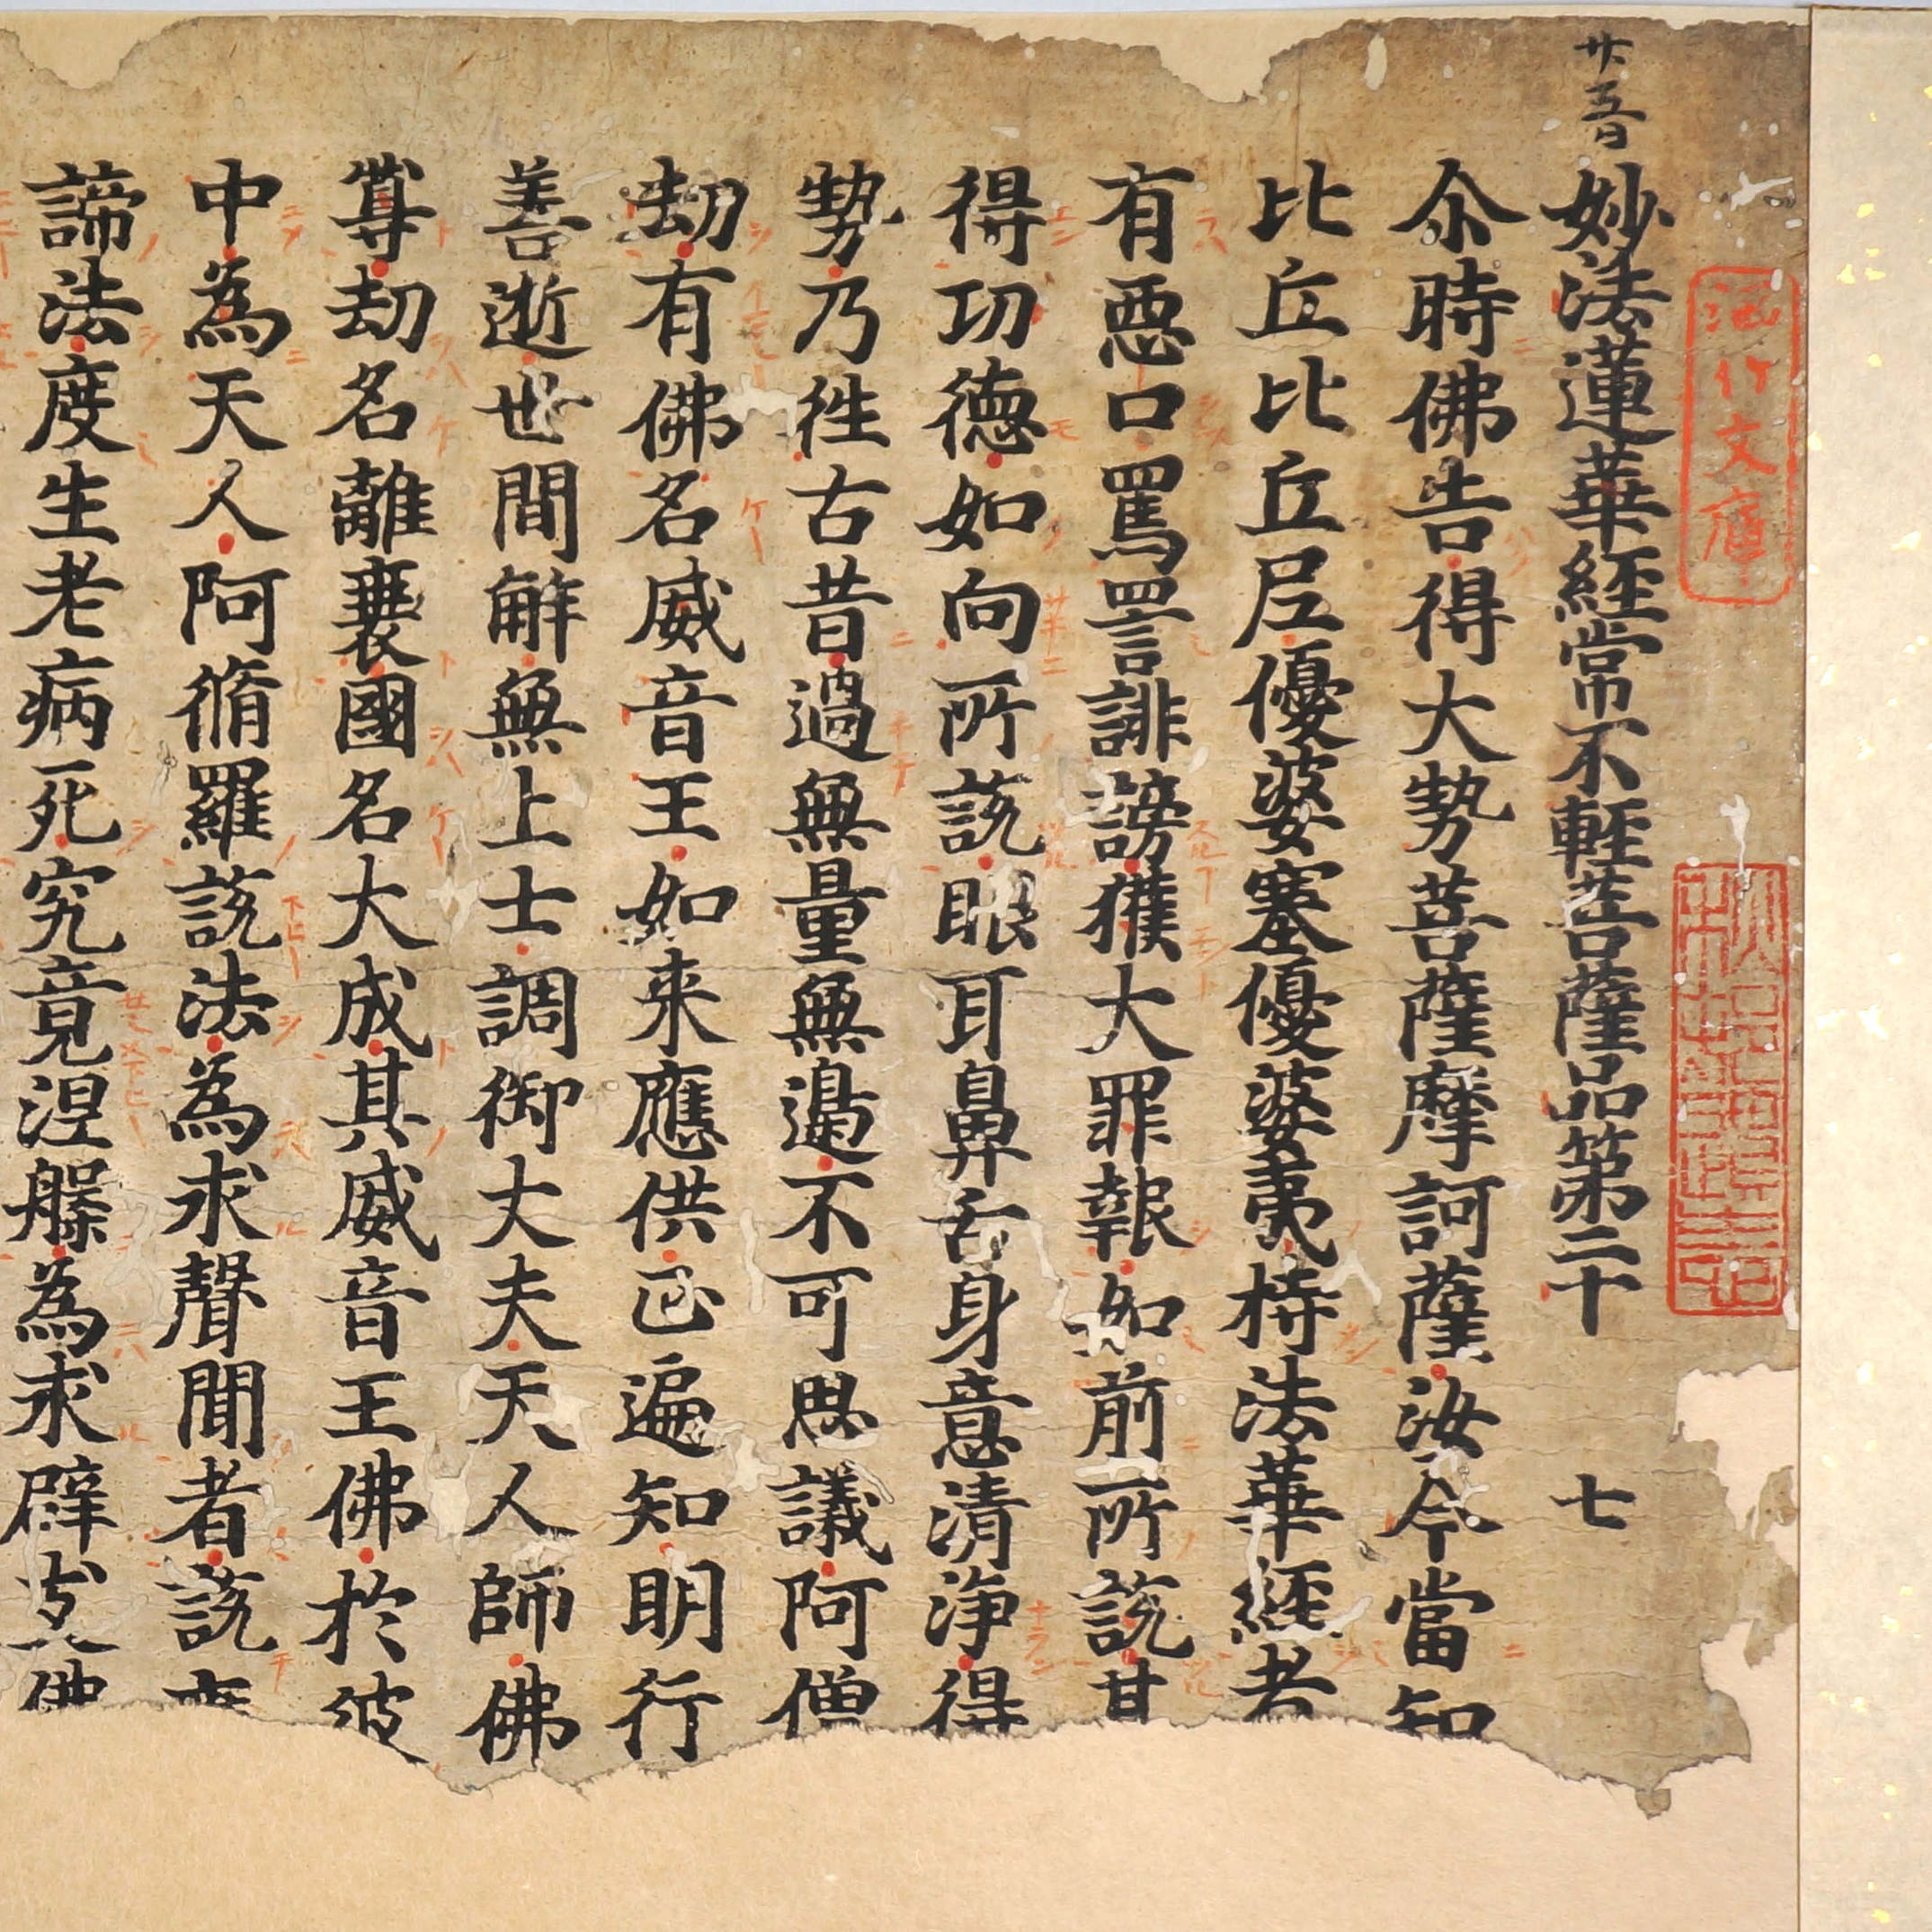 廿五音
妙法蓮華經常不輕菩薩品第二十 七
尒時佛告得大勢菩薩摩訶薩汝今當知
比丘比丘尼優婆塞優婆夷持法華經者
有惡口罵詈誹謗獲大罪報如前所說其
得功德如向所說眼耳鼻舌身意清淨得
勢乃往古昔過無量無邊不可思議阿僧
劫有佛名威音王如来應供正遍知明行
善逝世間解無上士調御丈夫天人師佛
尊劫名離衰國名大成其威音王佛於彼
中為天人阿脩羅說法為求聲聞者說應
諦法度生老病死究竟涅槃為求辟支佛
河竹文庫